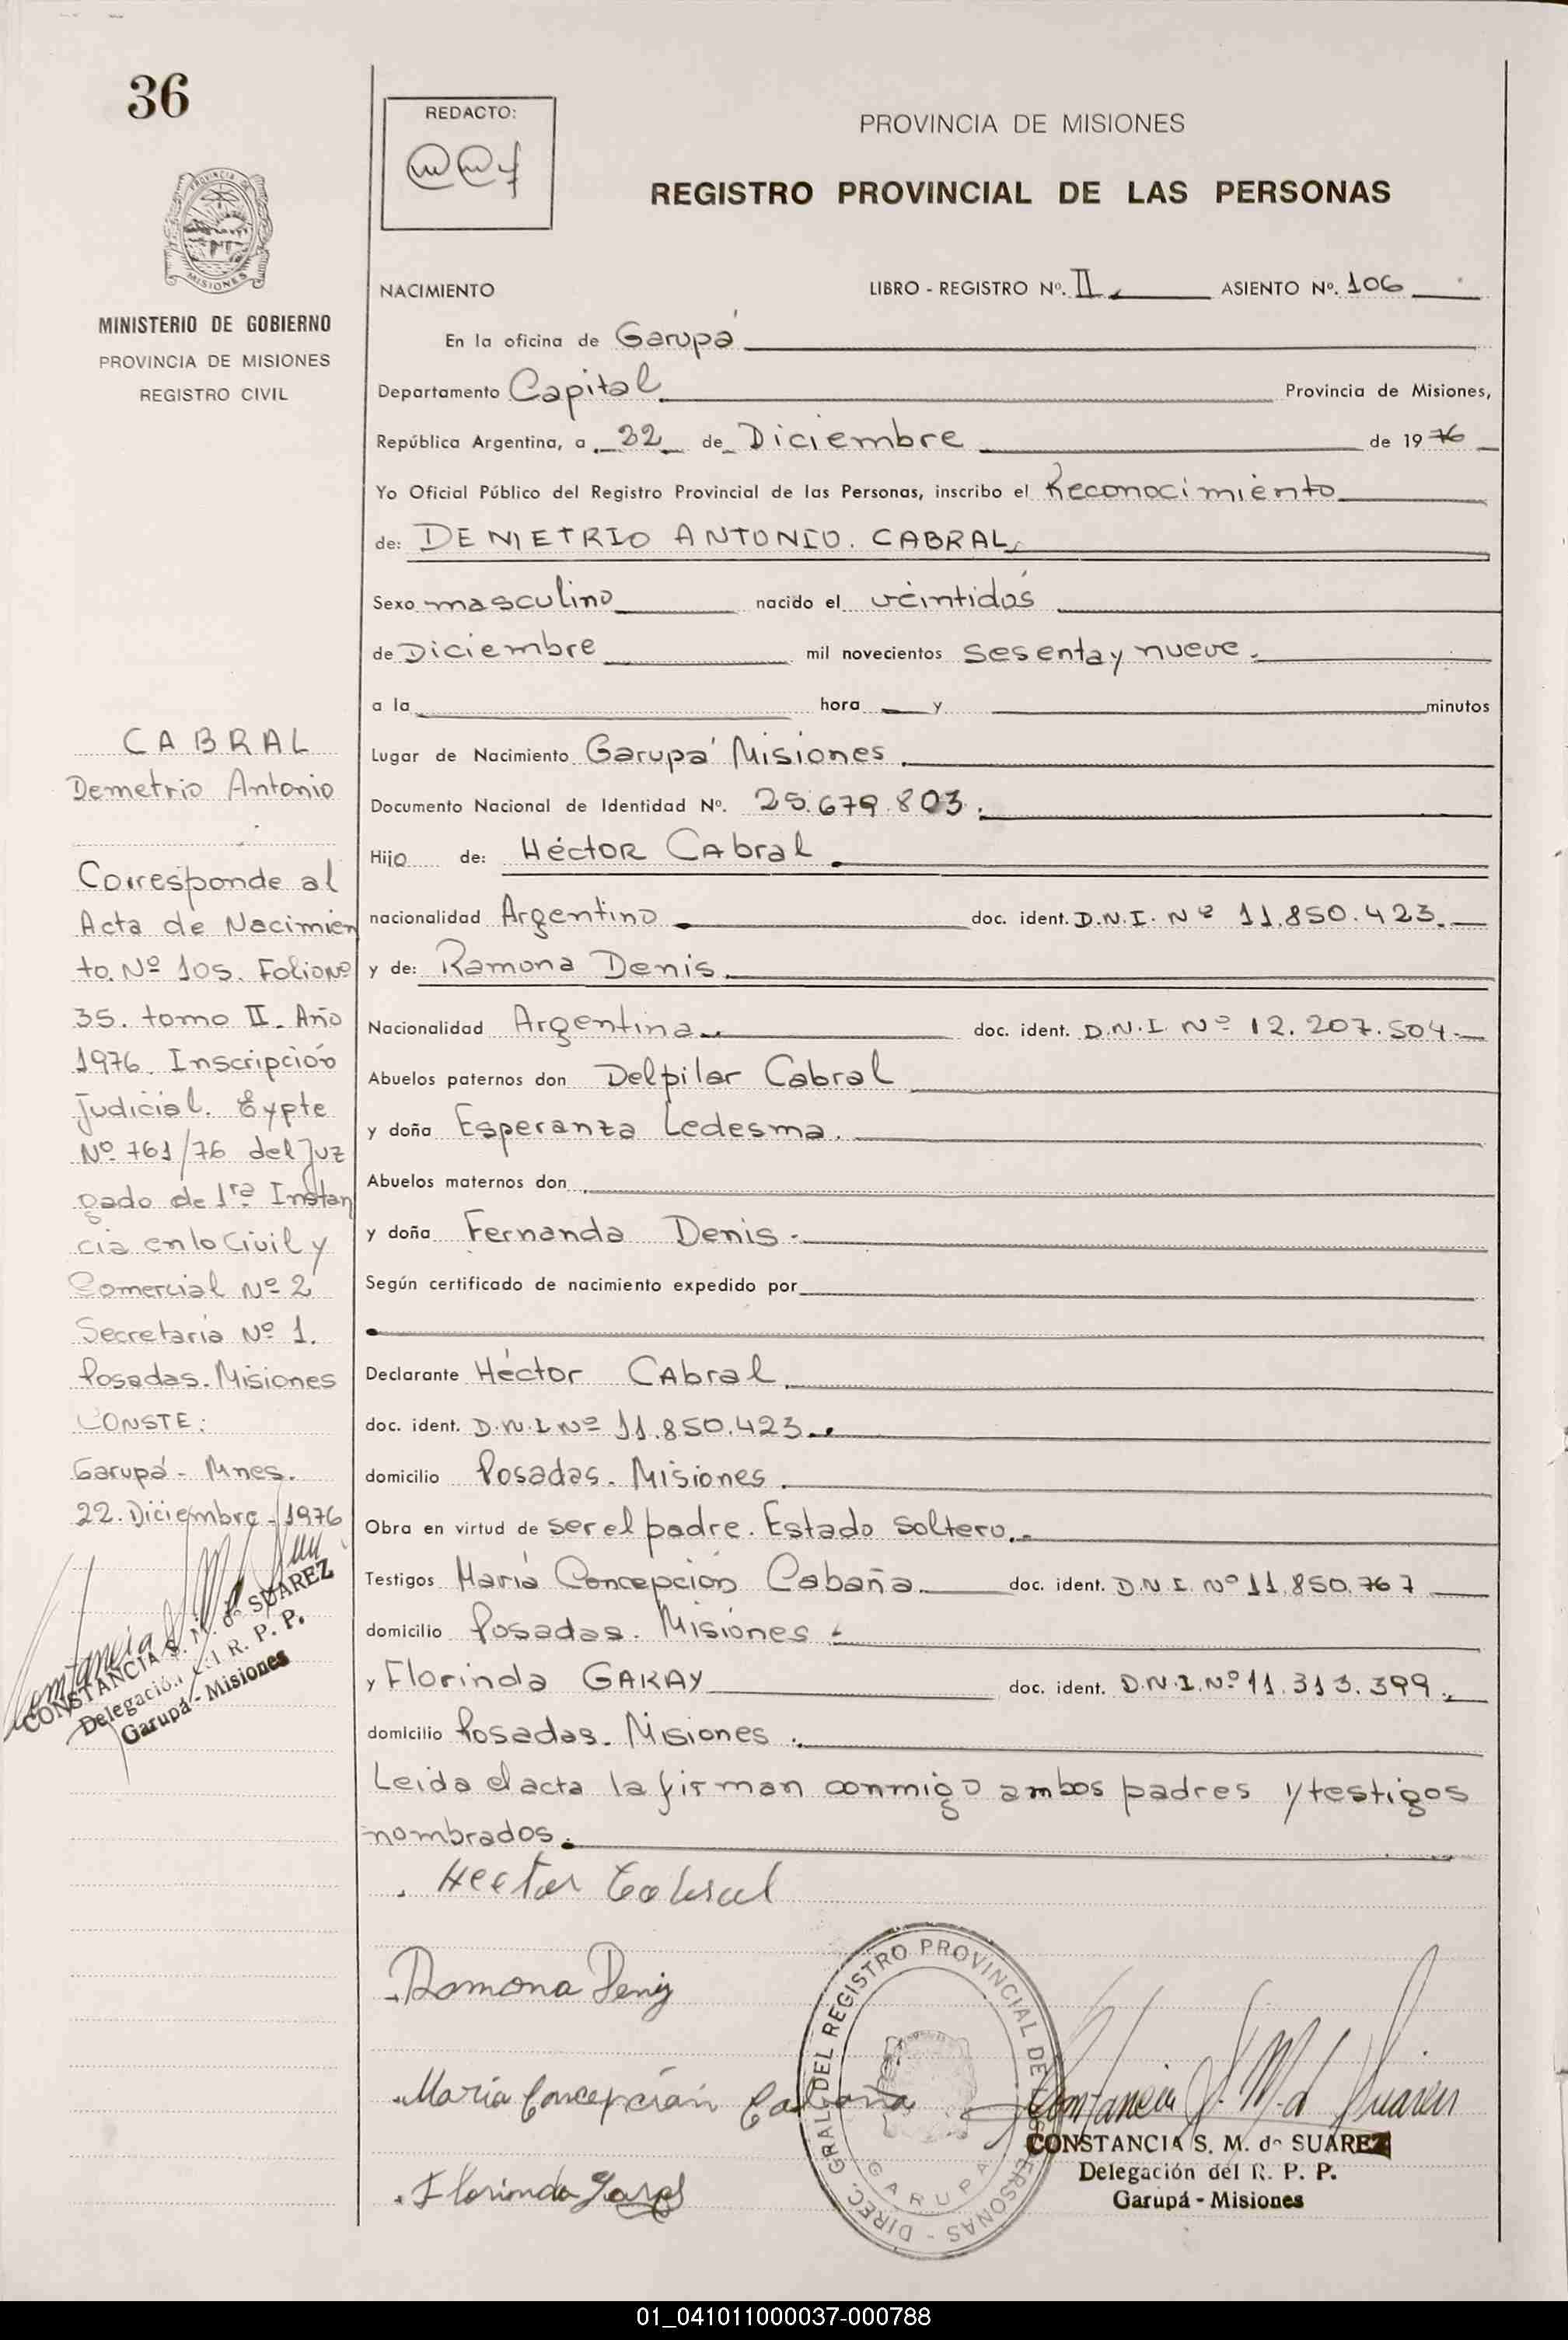 36
REDACTO:
PROVINCIA DE MISIONES
REGISTRO PROVINCIAL DE LAS PERSONAS
PROVINCIA DE
MISIONES
MINISTERIO DE GOBIERNO
PROVINCIA DE MISIONES
REGISTRO CIVIL
NACIMIENTO LIBRO - REGISTRO Nº. II ASIENTO Nº. 106
En la oficina de Garupá
Departamento Capital Provincia de Misiones,
República Argentina, a 22 de Diciembre de 1976
Yo Oficial Público del Registro Provincial de las Personas, inscribo el Reconocimiento
de: DEMETRIO ANTONIO. CABRAL
Sexo masculino nacido el veintidós
de Diciembre mil novecientos sesenta y nueve.
a la hora y minutos
Lugar de Nacimiento Garupá Misiones.
Documento Nacional de Identidad Nº. 25.679.803.
Hijo de: Héctor Cabral.
nacionalidad Argentino doc. ident. D.N.I. Nº 11.850.423.
y de: Ramona Denis.
Nacionalidad Argentina doc. ident. D.N.I. Nº 12.207.504.
Abuelos paternos don Delpilar Cabral
y doña Esperanza Ledesma.
Abuelos maternos don
y doña Fernanda Denis.
Según certificado de nacimiento expedido por
Declarante Héctor Cabral
doc. ident. D.N.I Nº 11.850.423.
domicilio Posadas. Misiones.
Obra en virtud de ser el padre. Estado Soltero.
Testigos María Concepción Cabaña doc. ident. D.N.I. Nº 11.850.767
domicilio Posadas. Misiones.
y Florinda GARAY doc. ident. D.N.I. Nº 11.313.399.
domicilio Posadas. Misiones.
Leida el acta la firman conmigo ambos padres y testigos
nombrados.
CABRAL
Demetrio Antonio
Corresponde al
Acta de Nacimien
to. Nº 105. Folio Nº
35. tomo II. Año
1976. Inscripción
Judicial. Expte
Nº 761/76 del Juz
gado de 1ra Instan
cia en lo Civil y
Comercial Nº 2
Secretaría Nº 1.
Posadas. Misiones
CONSTE:
Garupá - Mnes.
22. Diciembre - 1976
CONSTANCIA S. M. de SUAREZ
Delegación del R. P. P.
Garupá - Misiones
Hector Cabral
Ramona Denis
María Concepción Cabaña
Florinda Garay
DIREC. GRAL. DEL REGISTRO PROVINCIAL DE LAS PERSONAS -
GARUPA
Constancia S. M. d Suarez
CONSTANCIA S. M. de SUAREZ
Delegación del R. P. P.
Garupá - Misiones
01_041011000037-000788